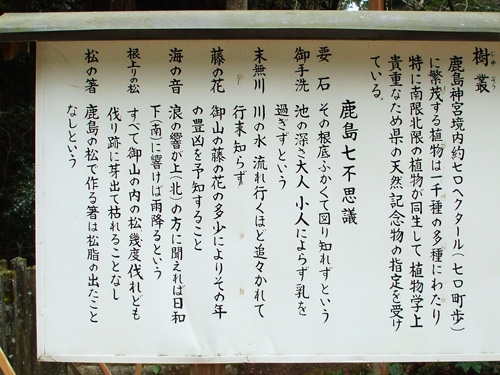 樹叢
じゅそう
鹿島神宮境内約七〇ヘクタール(七〇町歩)
に繁茂する植物は一千種の多種にわたり
特に南限北限の植物が同生して植物学上
貴重なため県の天然記念物の指定を受け
ている。
鹿島七不思議
要石 その根底ふかくて図り知れずという
御手洗 池の深さ大人小人によらず乳を
過ぎずという
末無川 川の水 流れ行くほど追々かれて
行末知らず
藤の花 御山の藤の花の多少によりその年
の豊凶を予知すること
海の音 浪の響が上(北)の方に聞えれば日和
下(南)に響けば雨降るという
根上りの松 すべて御山の内の松幾度伐れども
伐り跡に芽出て枯れることなし
松の箸 鹿島の松で作る箸は松脂の出たこと
なしという